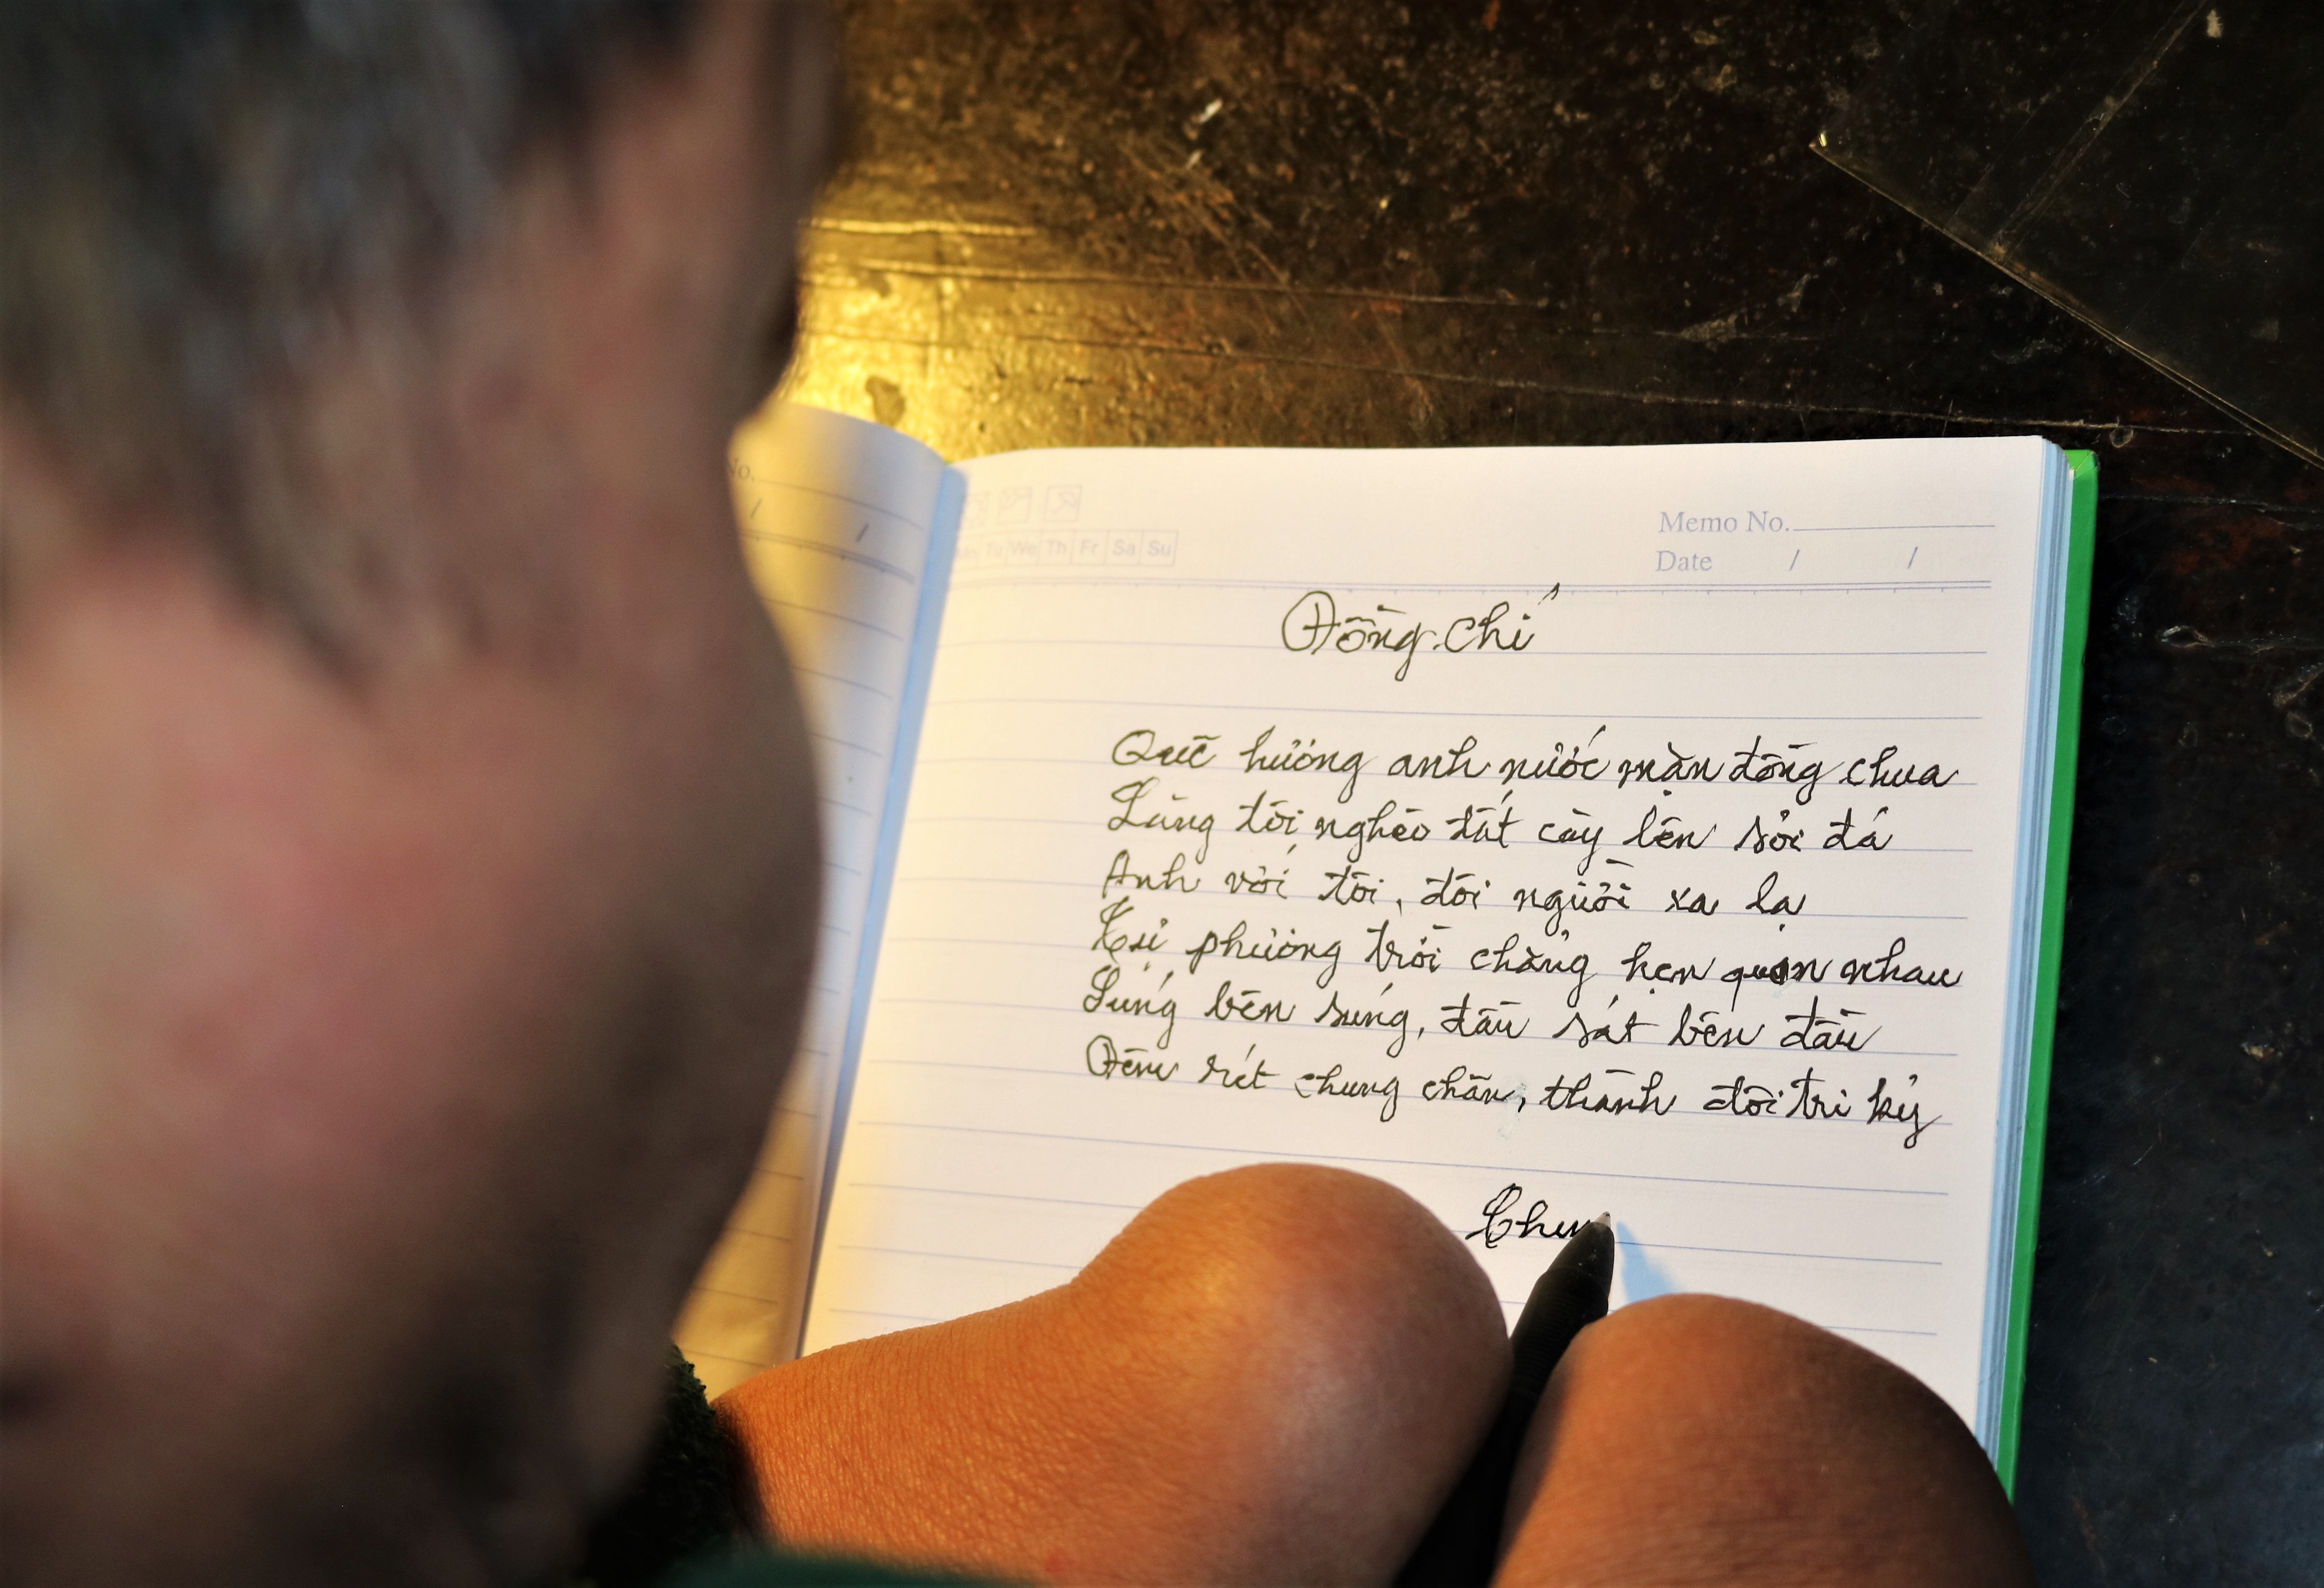 No.
/ /
Tu We Th Fr Sa Su
Memo No.
Date / /
Đồng chí
Quê hương anh nước mặn đồng chua
Làng tôi nghèo đất cày lên sỏi đá
Anh với tôi, đôi người xa lạ
Tự phương trời chẳng hẹn quen nhau
Súng bên súng, đầu sát bên đầu
Đêm rét chung chăn, thành đôi tri kỷ